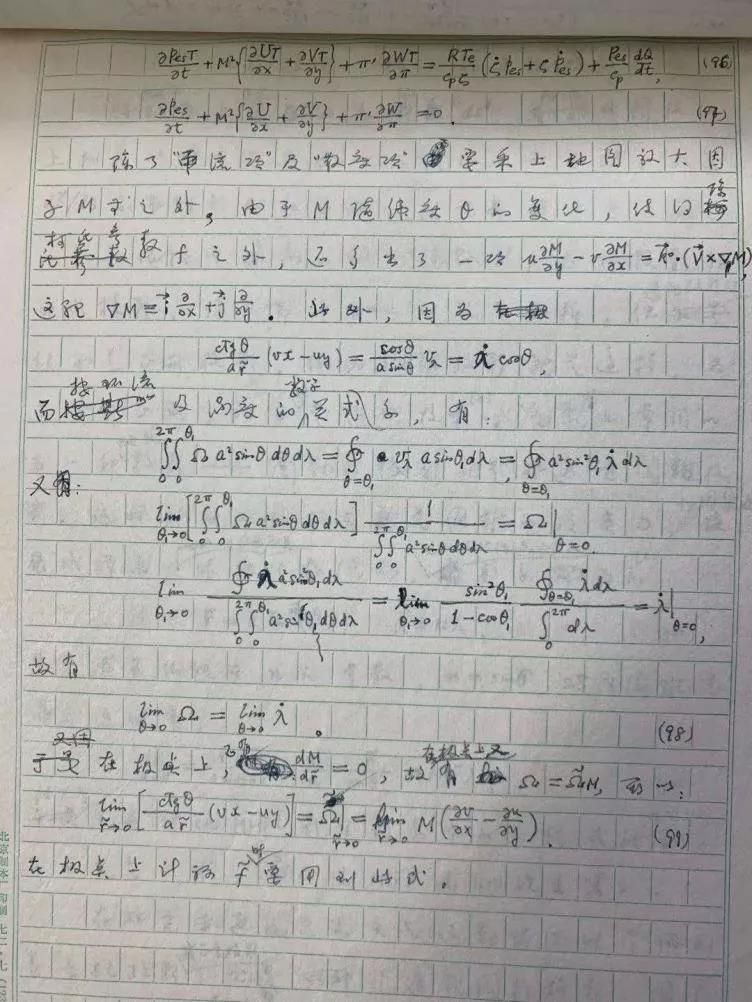 ∂PesT/∂t + M²{∂UT/∂x + ∂VT/∂y} + π'∂WT/∂π = RTe/cpζ (ζ̇Pes + ζṖes) + Pes/cp dQ/dt, (96)
∂Pes/∂t + M²{∂U/∂x + ∂V/∂y} + π'∂W/∂π = 0. (97)
除了“平流项”及“散度项”需乘上地图放大因
子M之外, 由于M随纬度θ的变化, 使得除
柯氏参数f之外, 还多出了一项 u∂M/∂y − v∂M/∂x = k⃗·(V⃗×∇M)
这里 ∇M = i⃗∂/∂x + j⃗∂/∂y. 此外, 因为
ctgθ/ar̃ (vx−uy) = cosθ/asinθ vλ = λ̇cosθ,
而按环流及涡度的数学关式, 有:
∫₀^2π∫₀^θ₁ Ω a²sinθdθdλ = ∮θ=θ₁ vλ asinθ₁dλ = ∮θ=θ₁ a²sin²θ₁λ̇dλ
又:
lim θ₁→0 [∫₀^2π∫₀^θ₁ Ωa²sinθdθdλ] 1/∫₀^2π∫₀^θ₁ a²sinθdθdλ = Ω|θ=0.
lim θ₁→0 ∮λ̇a²sin²θ₁dλ/∫₀^2π∫₀^θ₁ a²sinθ₁dθdλ = lim θ₁→0 sin²θ₁/1−cosθ₁ ∮θ=θ₁ λ̇dλ/∫₀^2π dλ = λ̇|θ=0,
故有
lim θ→0 Ω = lim θ→0 λ̇. (98)
又因在极点上, dM/dr̃ = 0, 故在极点上又有 Ω = Ω̃M, 所以:
lim r̃→0 [ctgθ/ar̃ (vx−uy)] = Ω̃ r̃→0 = lim r̃→0 M(∂v/∂x − ∂u/∂y). (99)
在极点上计算f̃时要用到此式.